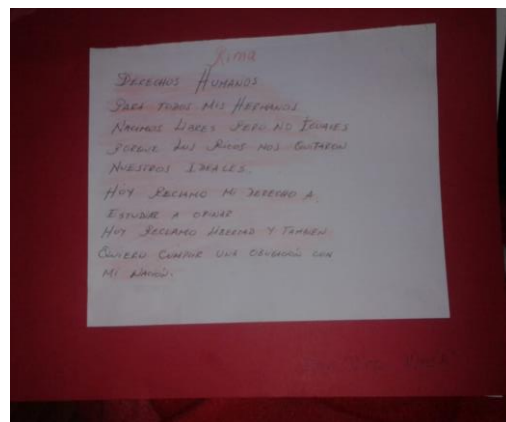 Rima
DERECHOS HUMANOS
PARA TODOS MIS HERMANOS
NACIMOS LIBRES PERO NO IGUALES
PORQUE LOS RICOS NOS QUITARON
NUESTROS IDEALES.
HOY RECLAMO MI DERECHO A
ESTUDIAR A OPINAR
HOY RECLAMO LIBERTAD Y TAMBIEN
QUIERO CUMPLIR UNA OBLIGACIÓN CON
MI NACIÓN.